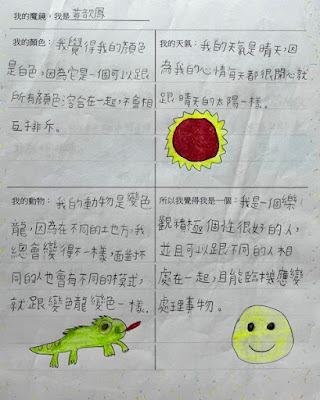 我的魔鏡,我是 黃歆鳳
我的顏色:我覺得我的顏色
是白色,因為它是一個可以跟
所有顏色溶合在一起,不會相
互排斥。
我的天氣:我的天氣是晴天,因
為我的心情每天都很開心就
跟晴天的太陽一樣。
我的動物:我的動物是變色
龍,因為在不同的地方,我
總會變得不一樣,面對不
同的人也會有不同的模式,
就跟變色龍變色一樣。
所以我覺得我是一個:我是一個樂
觀積極個性很好的人,
並且可以跟不同的人相
處在一起,且能臨機應變
處理事物。